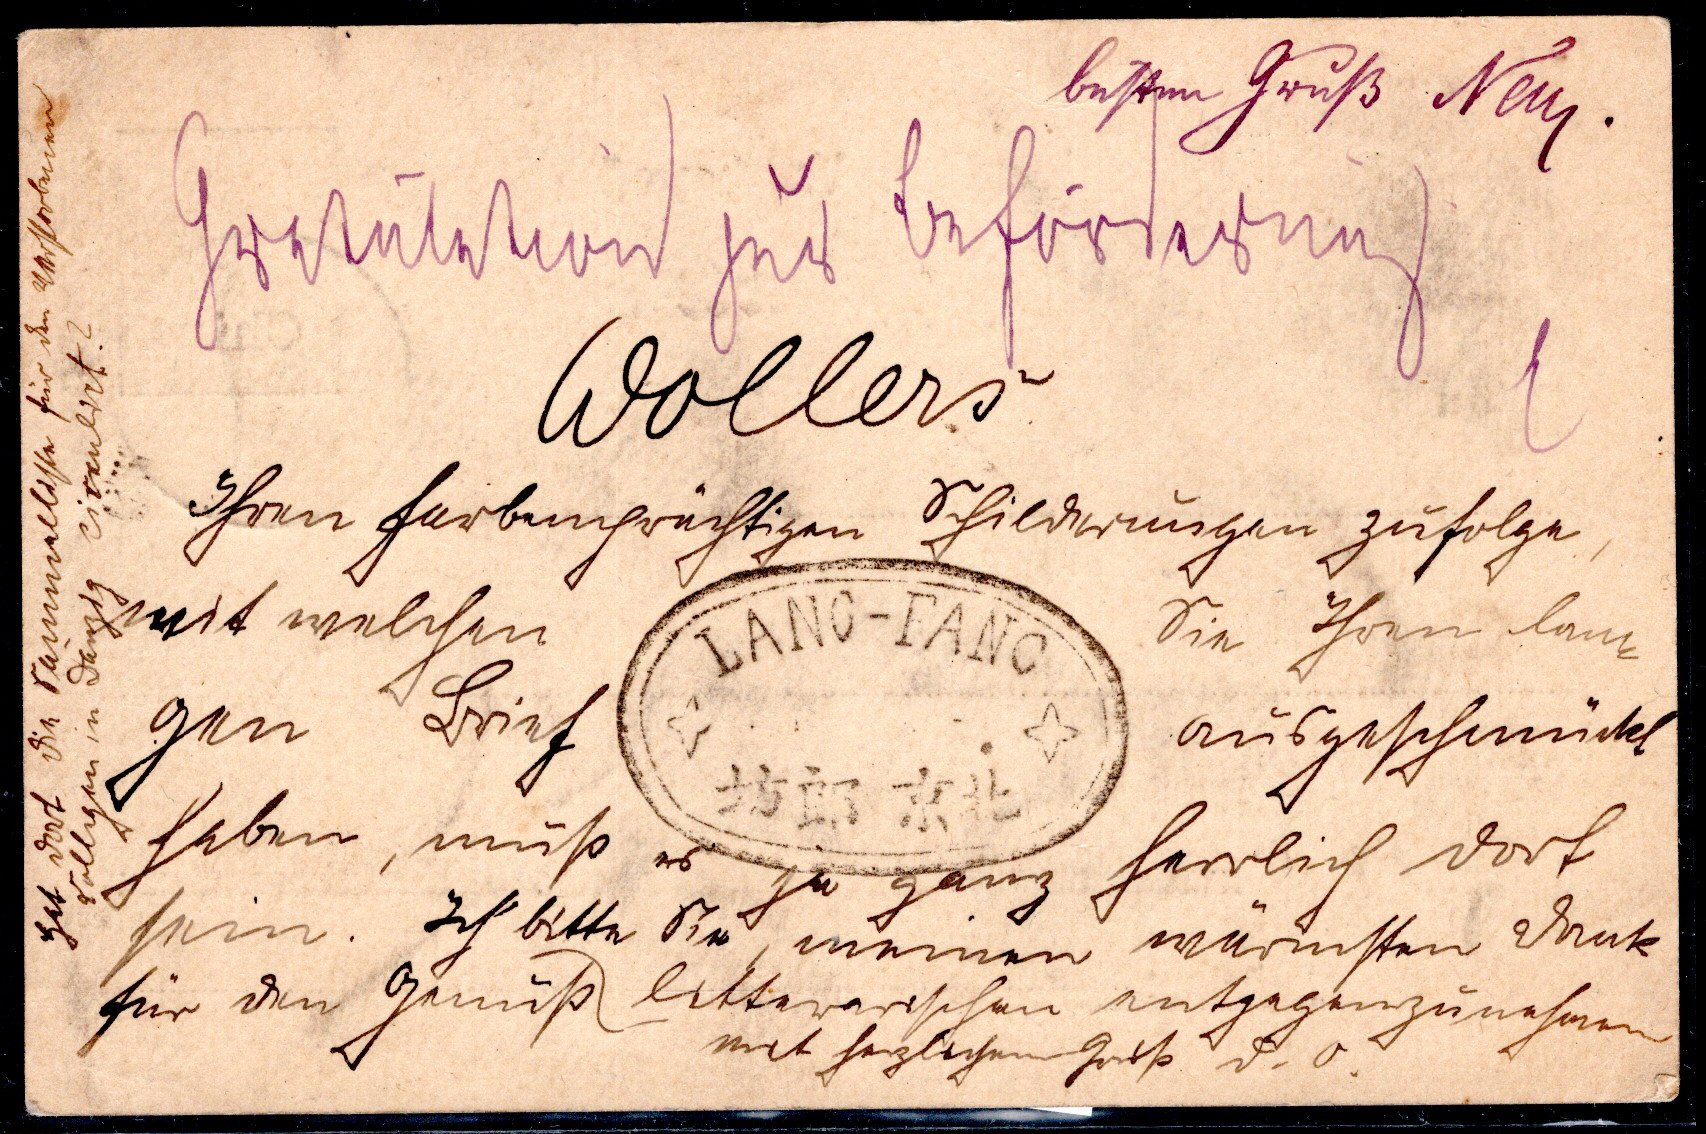 besten Gruß Neu.
Gratulation zur Beförderung
!
Wollers
Ihren farbenprächtigen Schilderungen zufolge,
mit welchen Sie Ihren lan-
gen Brief ausgeschmückt
haben, muß es ja ganz herrlich dort
sein. Ich bitte Sie, meinen wärmsten Dank
für den Genuß litterarischen entgegenzunehmen
mit herzlichem Gruß D. O.
LANG-FANG
Hat dort die Sammelliste für den verstorbenen
Kollegen in Danzig circulirt?